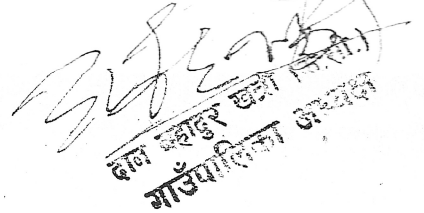 दान बहादुर खत्री (के.सी.)
गाउँपालिका अध्यक्ष